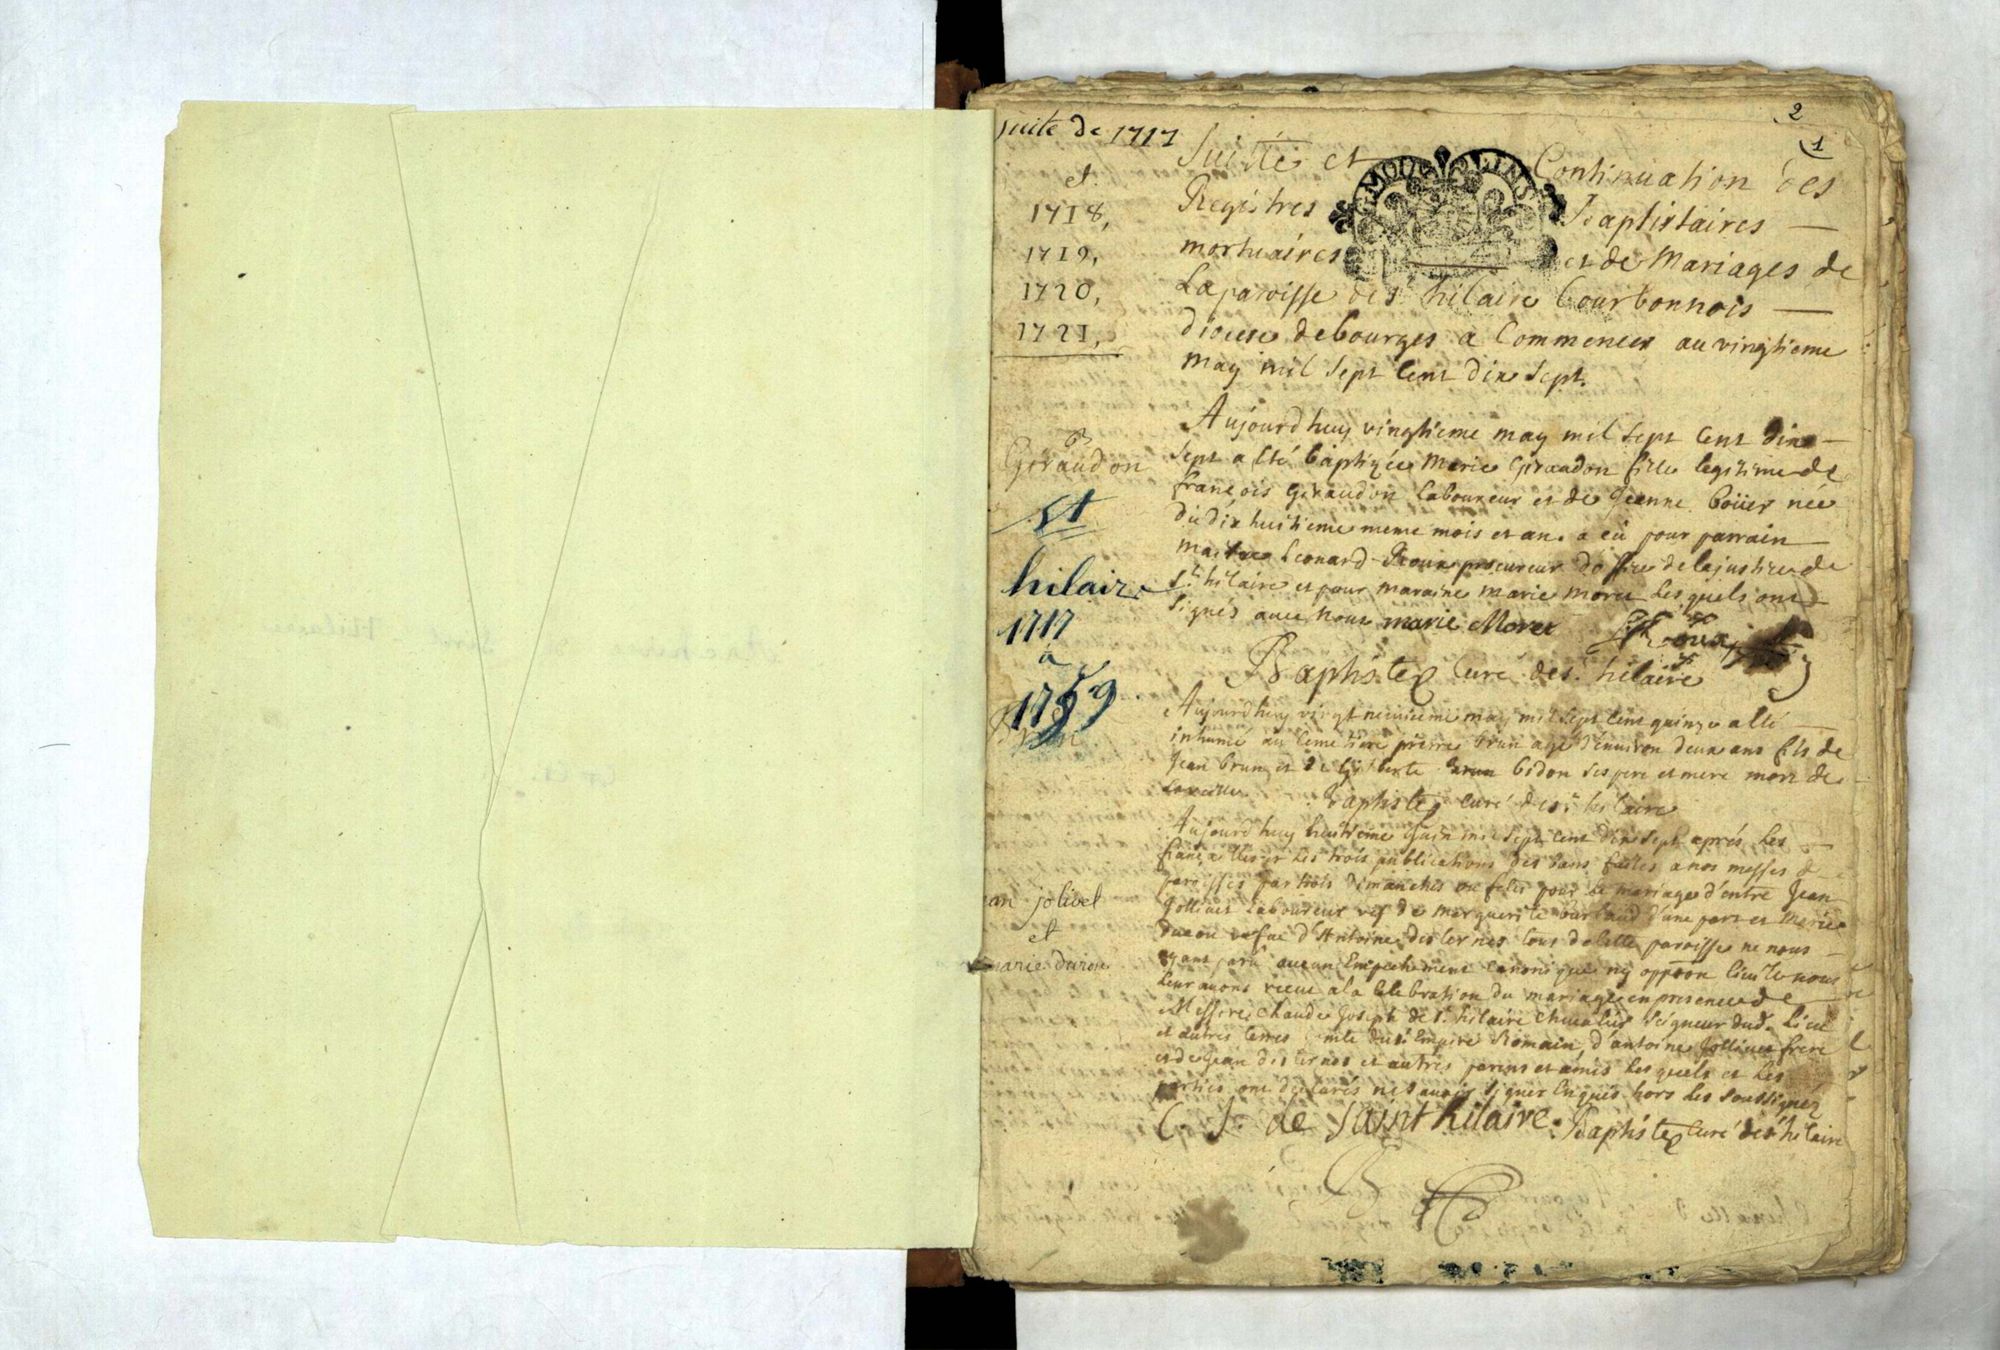 suite de 1717
et
1718,
1719,
1720,
1721,
2
1
Suitte et Continuation des
Registres Baptistaires
mortuaires et de Mariages de
La paroisse de St hilaire bourbonnois
diocese de bourges a Commencer au vingtieme
may mil sept Cent dix sept.
MOULINS
B
Giraudon
Aujourdhuy vingtieme may mil sept Cent dix
sept a esté baptizée Marie Giraudon fille legitime de
françois Giraudon Laboureur et de Jeanne boüer née
du dix huitieme meme mois et an. a eü pour parrain
maitre Leonard Roux procureur doffice de la justice de
St hilaire et pour maraine marie moret Lesquels ont
signés avec nous marie Moret Roux
Baptiste Curé de St hilaire
St
hilaire
1717
a
1759
Aujourdhuy vingt neuvieme may mil sept Cent quinze a esté
inhumé au Cemetiere pierre brun agé d'environ deux ans fils de
Jean brun et de Gilberte bidon ses pere et mere mort de
Baptiste curé de St hilaire
jean jolivet
et
marie duron
Aujourdhuy huitieme Juin mil sept Cent dix sept aprés Les
françailles et Les trois publications des bans faites a nos messes de
paroisses par trois Dimanches ou festes pour Le mariage d'entre Jean
Jollivet Laboureur vef de marguerite d'une part et Marie
Duron vefue d'Antoine des ternes tous de cette paroisse ne nous
ayant parü aucun Empechement canonique ny oppoon Licite nous
Leur avons receu a la Celebration du mariage en presence de
Messire Claude Joseph de St hilaire Chevalier Seigneur dud. Lieu
et autres terres Comte du St Empire Romain, d'antoine Jollivet frere
et de Jean des ternes et autres parens et amis Lesquels et Les
parties ont declarés ne sçavoir signer Enquis hors Les soussignéz
C. J. de Saint hilaire. Baptiste Curé de St hilaire